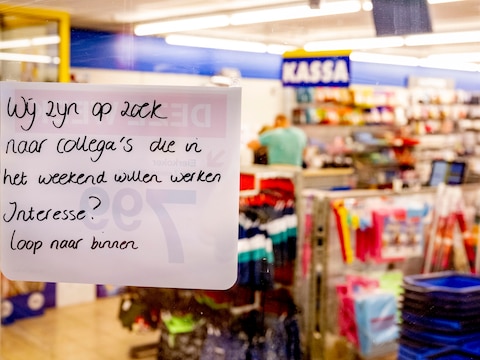 Wij zijn op zoek
naar collega's die in
het weekend willen werken
Interesse?
loop naar binnen
KASSA
799